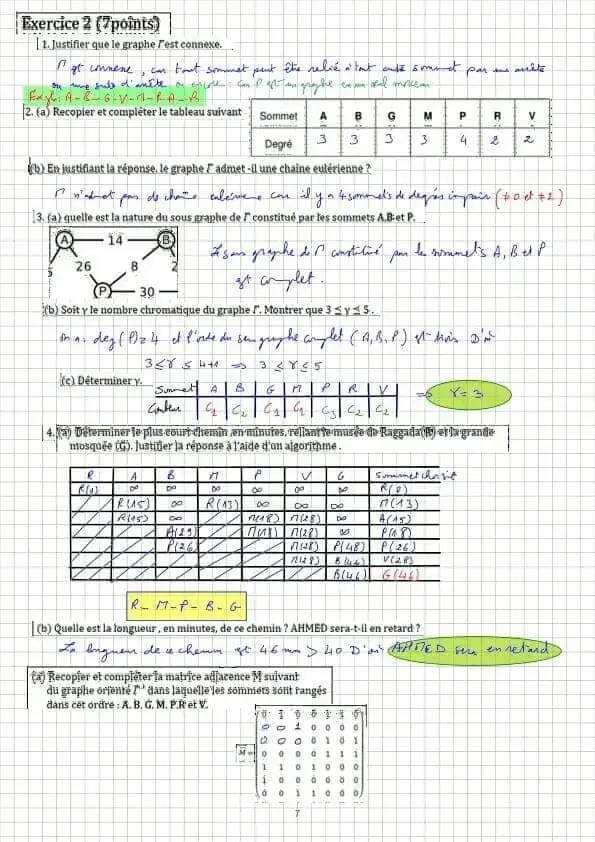 Exercice 2 (7points)
1. Justifier que le graphe Γ est connexe.
Γ est connexe, car tout sommet peut être relié à tout autre sommet par une arête
ou une suite d'arêtes ou encore : car Γ est un graphe en un seul morceau
Expl: A-B-G-V-M-P-A-R
2. (a) Recopier et compléter le tableau suivant
Sommet A B G M P R V
Degré 3 3 3 3 4 2 2
(b) En justifiant la réponse, le graphe Γ admet -il une chaîne eulérienne ?
Γ n'admet pas de chaîne eulérienne car il y a 4 sommets de degrés impair (≠0 et ≠2)
3. (a) quelle est la nature du sous graphe de Γ constitué par les sommets A,B et P.
A 14 B
5 26 8 2
P 30
Le sous graphe de Γ constitué par les sommets A, B et P
est complet.
(b) Soit γ le nombre chromatique du graphe Γ. Montrer que 3 ≤ γ ≤ 5 .
on a: deg(P)=4 et l'ordre du sous graphe complet (A,B,P) est trois D'où
3≤γ≤4+1 ⇒ 3≤γ≤5
(c) Déterminer γ.
Sommet A B G M P R V
Couleur C1 C2 C1 C1 C3 C2 C2
⇒ γ=3
4. (a) Déterminer le plus court chemin ,en minutes, reliant le musée de Raggada(R) et la grande
mosquée (G). Justifier la réponse à l'aide d'un algorithme .
R A B M P V G Sommet choisit
R(0) ∞ ∞ ∞ ∞ ∞ ∞ R(0)
R(15) ∞ R(13) ∞ ∞ ∞ M(13)
R(15) ∞ M(18) M(28) ∞ A(15)
A(29) M(18) M(28) ∞ P(18)
P(26 M(28) P(48) P(26)
M(28) B(46) V(28)
B(46) G(46)
R-M-P-B-G
(b) Quelle est la longueur , en minutes, de ce chemin ? AHMED sera-t-il en retard ?
La longueur de ce chemin est 46 min > 40 D'où AHMED sera en retard
(a) Recopier et compléter la matrice adjacence M suivant
du graphe orienté Γ' dans laquelle les sommets sont rangés
dans cet ordre : A, B, G, M, P,R et V.
M =
0 0 1 0 0 0 0
0 0 0 0 1 0 1
0 0 0 0 1 1 1
1 1 0 1 0 0 0
1 0 0 0 0 0 0
0 0 1 1 0 0 0
7